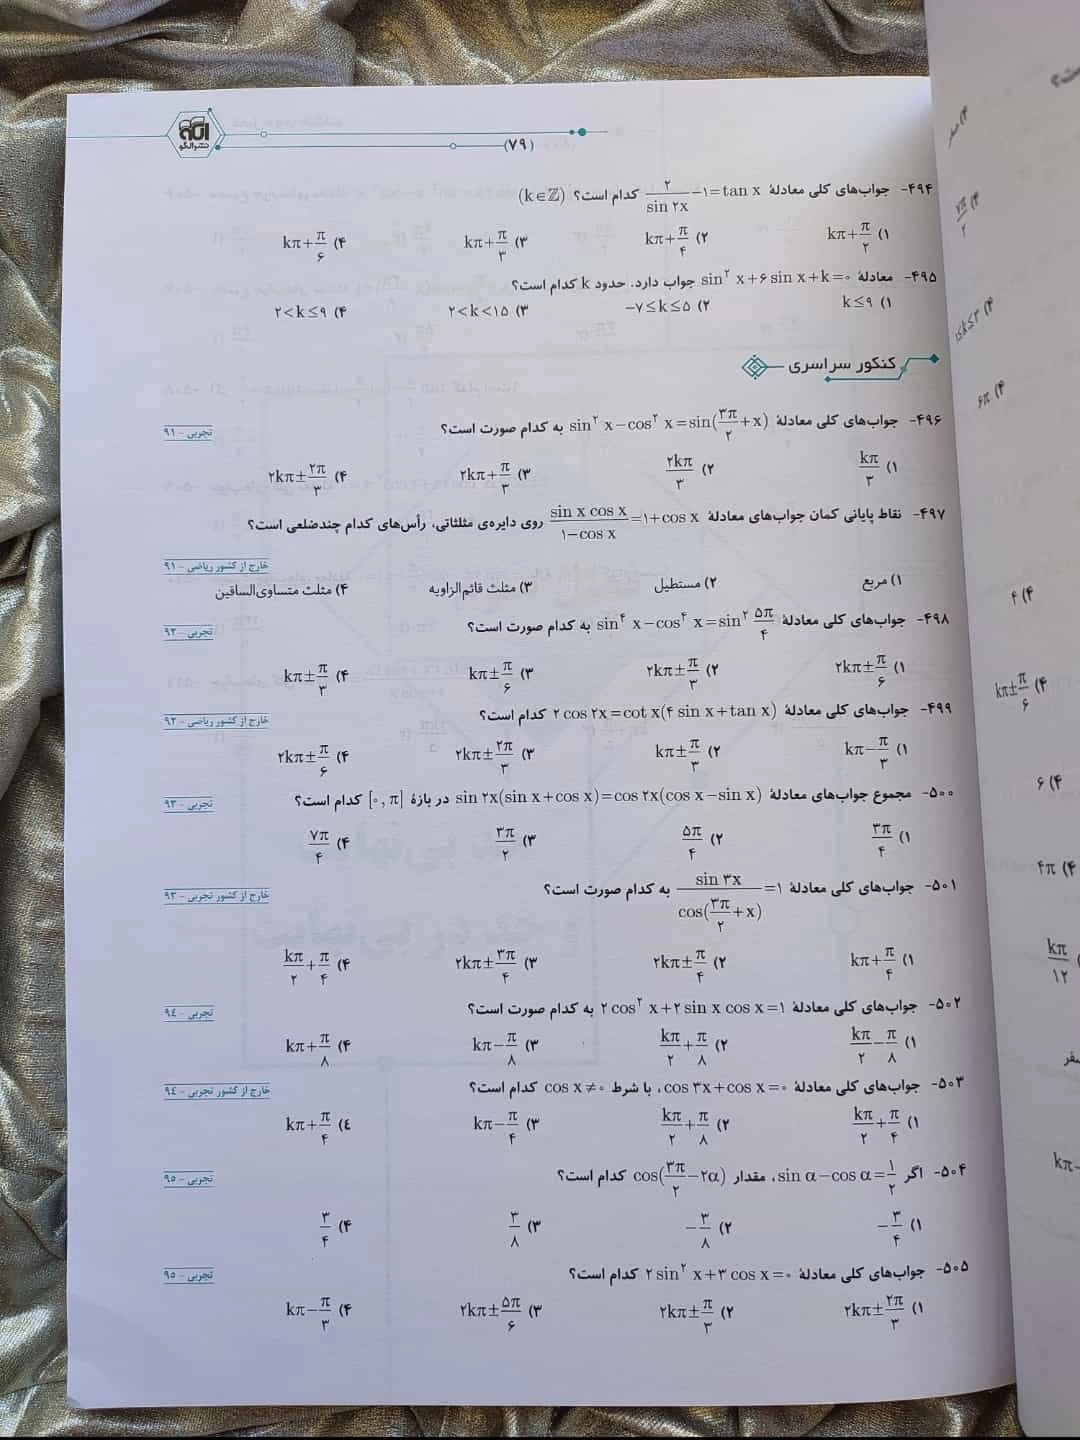 نشرالگو
(۷۹)
۴۹۴- جواب‌های کلی معادلهٔ ۲/sin ۲x −۱=tan x کدام است؟ (k∈ℤ)
۱) kπ+π/۲ ۲) kπ+π/۴ ۳) kπ+π/۳ ۴) kπ+π/۶
۴۹۵- معادلهٔ sin² x+۶ sin x+k=۰ جواب دارد. حدود k کدام است؟
۱) k≤۹ ۲) −۷≤k≤۵ ۳) ۲<k<۱۵ ۴) ۲<k≤۹
کنکور سراسری
۴۹۶- جواب‌های کلی معادلهٔ sin² x−cos² x=sin(۳π/۲+x) به کدام صورت است؟ تجربی - ۹۱
۱) kπ/۳ ۲) ۲kπ/۳ ۳) ۲kπ+π/۳ ۴) ۲kπ±۲π/۳
۴۹۷- نقاط پایانی کمان جواب‌های معادلهٔ sin x cos x/۱−cos x=۱+cos x روی دایره‌ی مثلثاتی، رأس‌های کدام چندضلعی است؟
خارج از کشور ریاضی - ۹۱
۱) مربع ۲) مستطیل ۳) مثلث قائم‌الزاویه ۴) مثلث متساوی‌الساقین
۴۹۸- جواب‌های کلی معادلهٔ sin⁴ x−cos⁴ x=sin² ۵π/۴ به کدام صورت است؟ تجربی - ۹۲
۱) ۲kπ±π/۶ ۲) ۲kπ±π/۳ ۳) kπ±π/۶ ۴) kπ±π/۳
۴۹۹- جواب‌های کلی معادلهٔ ۲ cos ۲x=cot x(۴ sin x+tan x) کدام است؟ خارج از کشور ریاضی - ۹۲
۱) kπ−π/۳ ۲) kπ±π/۳ ۳) ۲kπ±۲π/۳ ۴) ۲kπ±π/۶
۵۰۰- مجموع جواب‌های معادلهٔ sin ۲x(sin x+cos x)=cos ۲x(cos x−sin x) در بازهٔ [۰,π] کدام است؟ تجربی - ۹۳
۱) ۳π/۴ ۲) ۵π/۴ ۳) ۳π/۲ ۴) ۷π/۴
۵۰۱- جواب‌های کلی معادلهٔ sin ۳x/cos(۳π/۲+x)=۱ به کدام صورت است؟ خارج از کشور تجربی - ۹۳
۱) kπ+π/۴ ۲) ۲kπ±π/۴ ۳) ۲kπ±۳π/۴ ۴) kπ/۲+π/۴
۵۰۲- جواب‌های کلی معادلهٔ ۲ cos² x+۲ sin x cos x=۱ به کدام صورت است؟ تجربی - ۹٤
۱) kπ/۲−π/۸ ۲) kπ/۲+π/۸ ۳) kπ−π/۸ ۴) kπ+π/۸
۵۰۳- جواب‌های کلی معادلهٔ cos ۳x+cos x=۰، با شرط cos x≠۰ کدام است؟ خارج از کشور تجربی - ۹٤
۱) kπ/۲+π/۴ ۲) kπ/۲+π/۸ ۳) kπ−π/۴ ٤) kπ+π/۴
۵۰۴- اگر sin α−cos α=۱/۲، مقدار cos(۳π/۲−۲α) کدام است؟ تجربی - ۹۵
۱) −۳/۴ ۲) −۳/۸ ۳) ۳/۸ ۴) ۳/۴
۵۰۵- جواب‌های کلی معادلهٔ ۲ sin² x+۳ cos x=۰ کدام است؟ تجربی - ۹۵
۱) ۲kπ±۲π/۳ ۲) ۲kπ±π/۳ ۳) ۲kπ±۵π/۶ ۴) kπ−π/۳
۴) صفر
۴) ۷π/۲
۴) ۶π
۴) ۴
۴) kπ±π/۶
۴) ۶
۴) ۴π
kπ/۱۲
kπ−